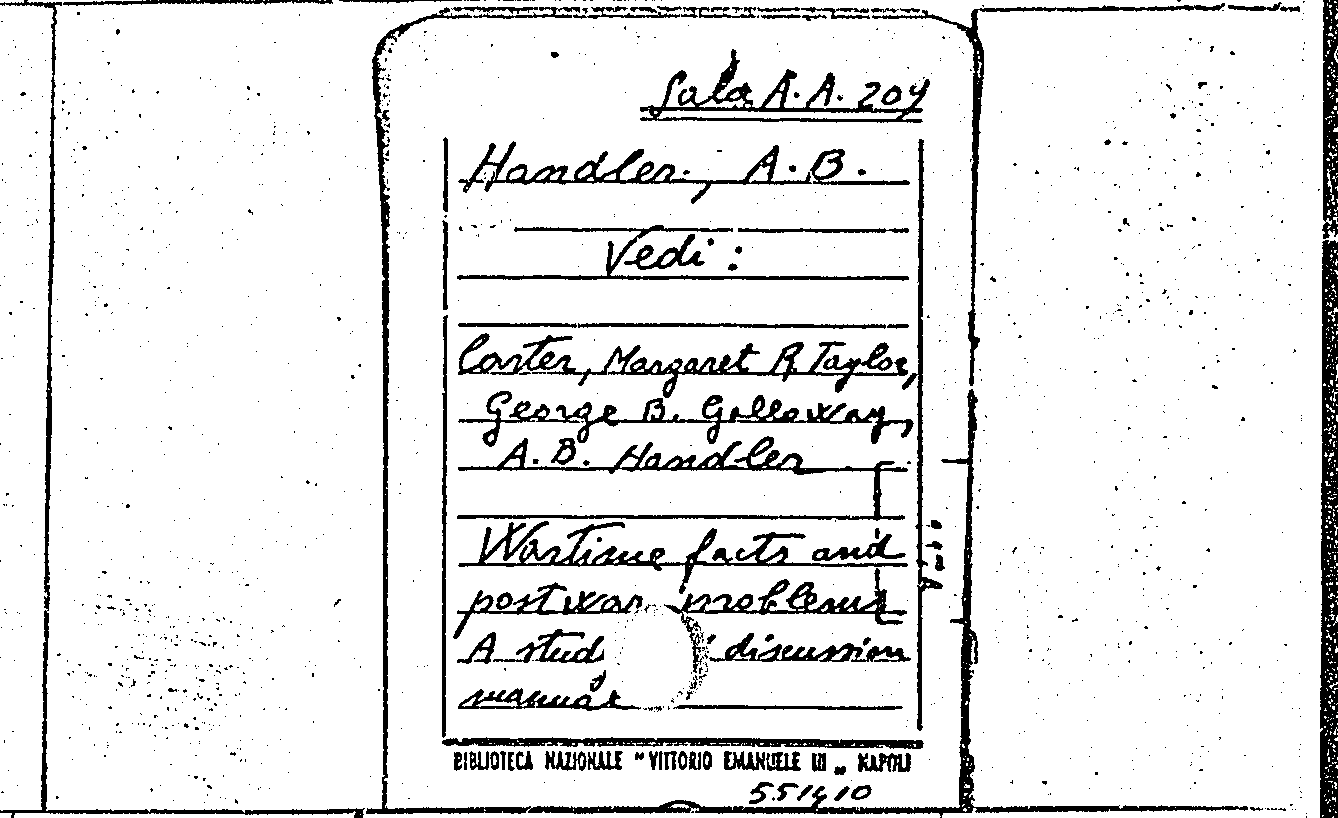 Sala A.A. 204
Handler, A.B.
Vedi:
Carter, Margaret R. Taylor,
George B. Galloway,
A.B. Handler
Wartime facts and
postwar problems
A study discussion
manual
BIBLIOTECA NAZIONALE "VITTORIO EMANUELE III" NAPOLI